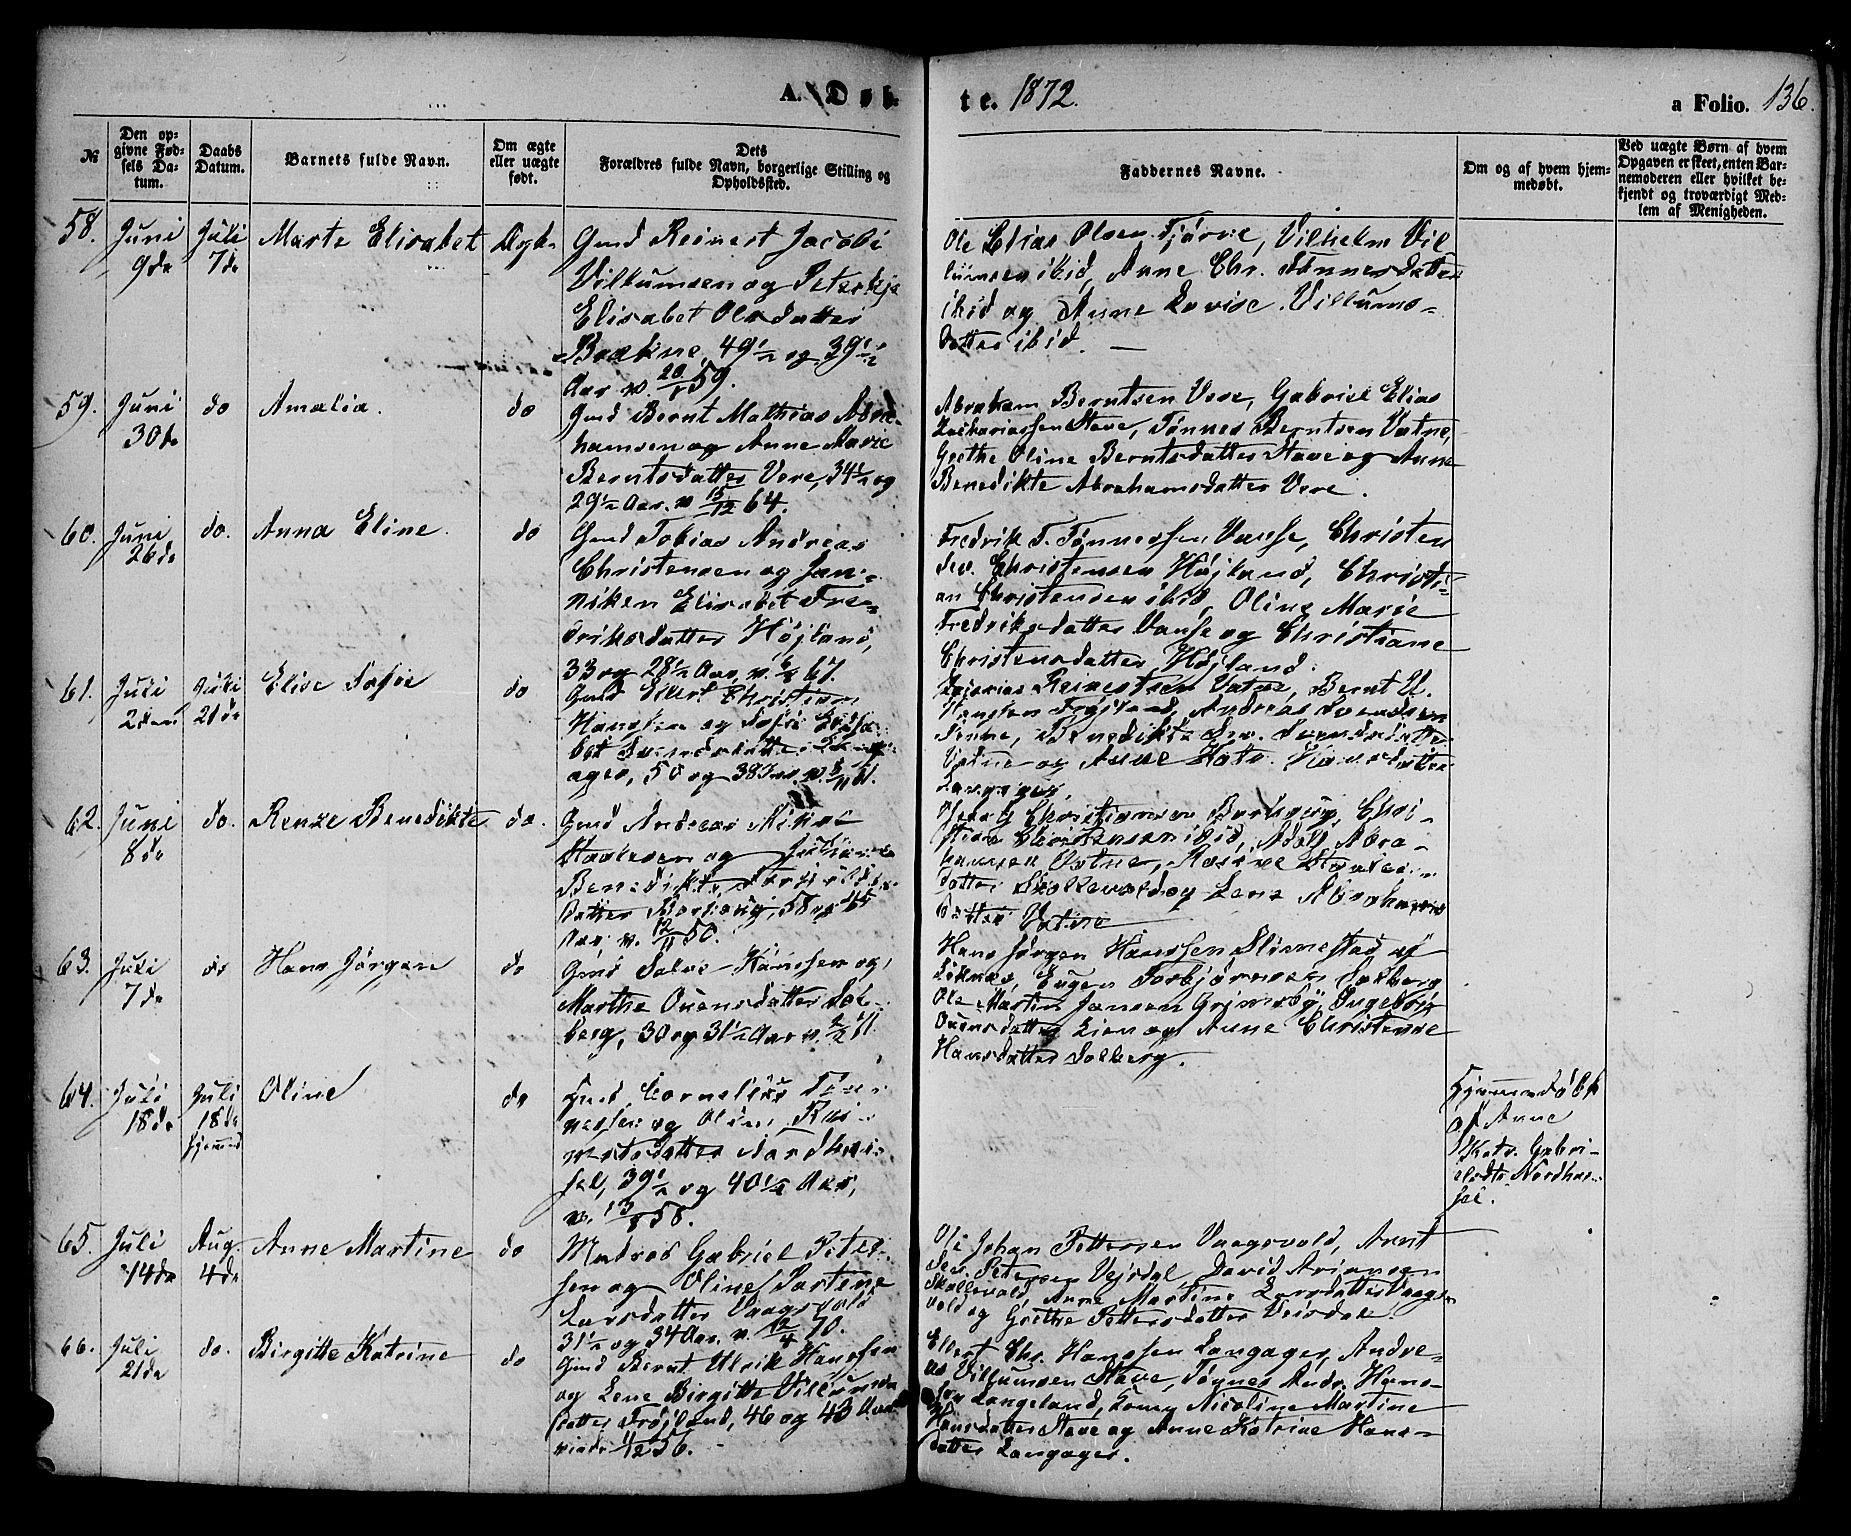 A. Døb-
te. 1872.
a Folio. 136.
№
Den op-
givne Fød-
sels Da-
tum.
Daabs
Datum.
Barnets fulde Navn.
Om ægte
eller uægte
født.
Dets
Forældres fulde Navn, borgerlige Stilling og
Opholdssted.
Faddernes Navne.
Om og af hvem hjem-
medøbt.
Ved uægte Børn af hvem
Opgaven er skeet, enten Bar-
nemoderen eller hvilket be-
kjendt og troværdigt Med-
lem af Menigheden.
58. Juni 9de
Juli 7de
Marte Elisabet
Ægte
Gmd Reinert Jacobi
Villumsen og
Elisabet Olsdatter
Brækne, 49½ og 39½
Aar v 59.
Ole Elias Olsen Tjørve, Vilhelm Vil-
lumsen ibid, Anne Chr. Tønnesdatter
ibid og Anne Lovise Villums-
datter ibid.
59. Juni 30de
do
Amalia.
do
Gmd Bernt Mathias Abra-
hamsen og Anne Marie
Berntsdatter Vere, 34½ og
29½ Aar. v 15/12 64.
Abraham Berntsen Vere, Gabriel Elias
Zachariassen Stave, Tønnes Berntsen Vatne,
Grethe Oline Berntsdatter Stave og Anne
Benedikte Abrahamsdatter Vere.
60. Juni 26de
do.
Anna Eline.
do
Gmd Tobias Andreas
Christensen og Jan-
niken Elisabet Fre-
driksdatter Højland,
33 og 28½ Aar, v. 67.
Fredrik T. Tønnessen Vanse, Christen
Christensen Højland, Christi-
an Christensen ibid, Oline Marie
Fredriksdatter Vanse og Christiane
Christensdatter Højland.
61. Juli 2den
Juli 21de
Elise Sofie
do
Gmd Eilert Christian
Hanssen og Sofie Elisa-
bet
ager, 50 og 38 Aar. v.
Reinertsen Vatne, Bernt U.
Hanssen Frøjland, Andreas Svendsen
Benedikte
Vatne og Anne Katr. Hansdatter
Langager.
62. Juni 8de
do.
Renze Benedikte
do.
Gmd Andreas Mikal
og
Benedikte
datter Borhaug, 58 og 45
Aar v. 12/11 50.
Christiansen Borhaug, Chri-
stian Christensen ibid, Adolf Abra-
hamsen Vatne,
datter Skollevold og Lene Abrahams-
datter Vatne
63. Juli 7de
do
Hans Jørgen
do
Gmd Salve Hanssen og
Marthe Ouensdatter Sol-
berg, 30 og 31½ Aar v.
Hans Jørgen Hanssen Slimestad af
Liknes, Eugen Torbjørnsen Solberg
Ole Martin Jansen Grimsby, Ingeborg
Ouensdatter Lien og Anne Christense
Hansdatter Solberg.
64. Juli 18de
Juli 18de hjemmed
Oline
do
Gmd Cornelius Tøn-
nessen og Oline Rei-
nertsdatter Nordhas-
sel, 39½ og 40½ Aar,
v. 58.
Hjemmedøbt
af Anne
Katr. Gabri-
elsdtr Nordhas-
sel.
65. Juli 14de
Aug. 4de
Anne Martine
do
Matros Gabriel Peter-
sen og Oline Sartine
Larsdatter Vaagsvold
31½ og 34 Aar. v. 12/4 70.
Ole Johan Pettersen Vaagsvold, Arnt
Petersen Vejsdal, David Ariansen
Skollevold, Anne Martine Larsdatter Vaags-
vold og Grethe Pettersdatter Veisdal.
66. Juli 21de
do.
Birgitte Katrine
do
Gmd Bernt Ulrik Hanssen
og Lene Birgitte Villums-
datter Frøjland, 46 og 43 Aar
viede 56.
Eilert Chr. Hanssen Langager, Andre-
as Villumsen Stave, Tønnes Andr. Hans-
sen Langeland, Nicoline Martine
Hansdatter Stave og Anne Katrine Hans-
datter Langager.